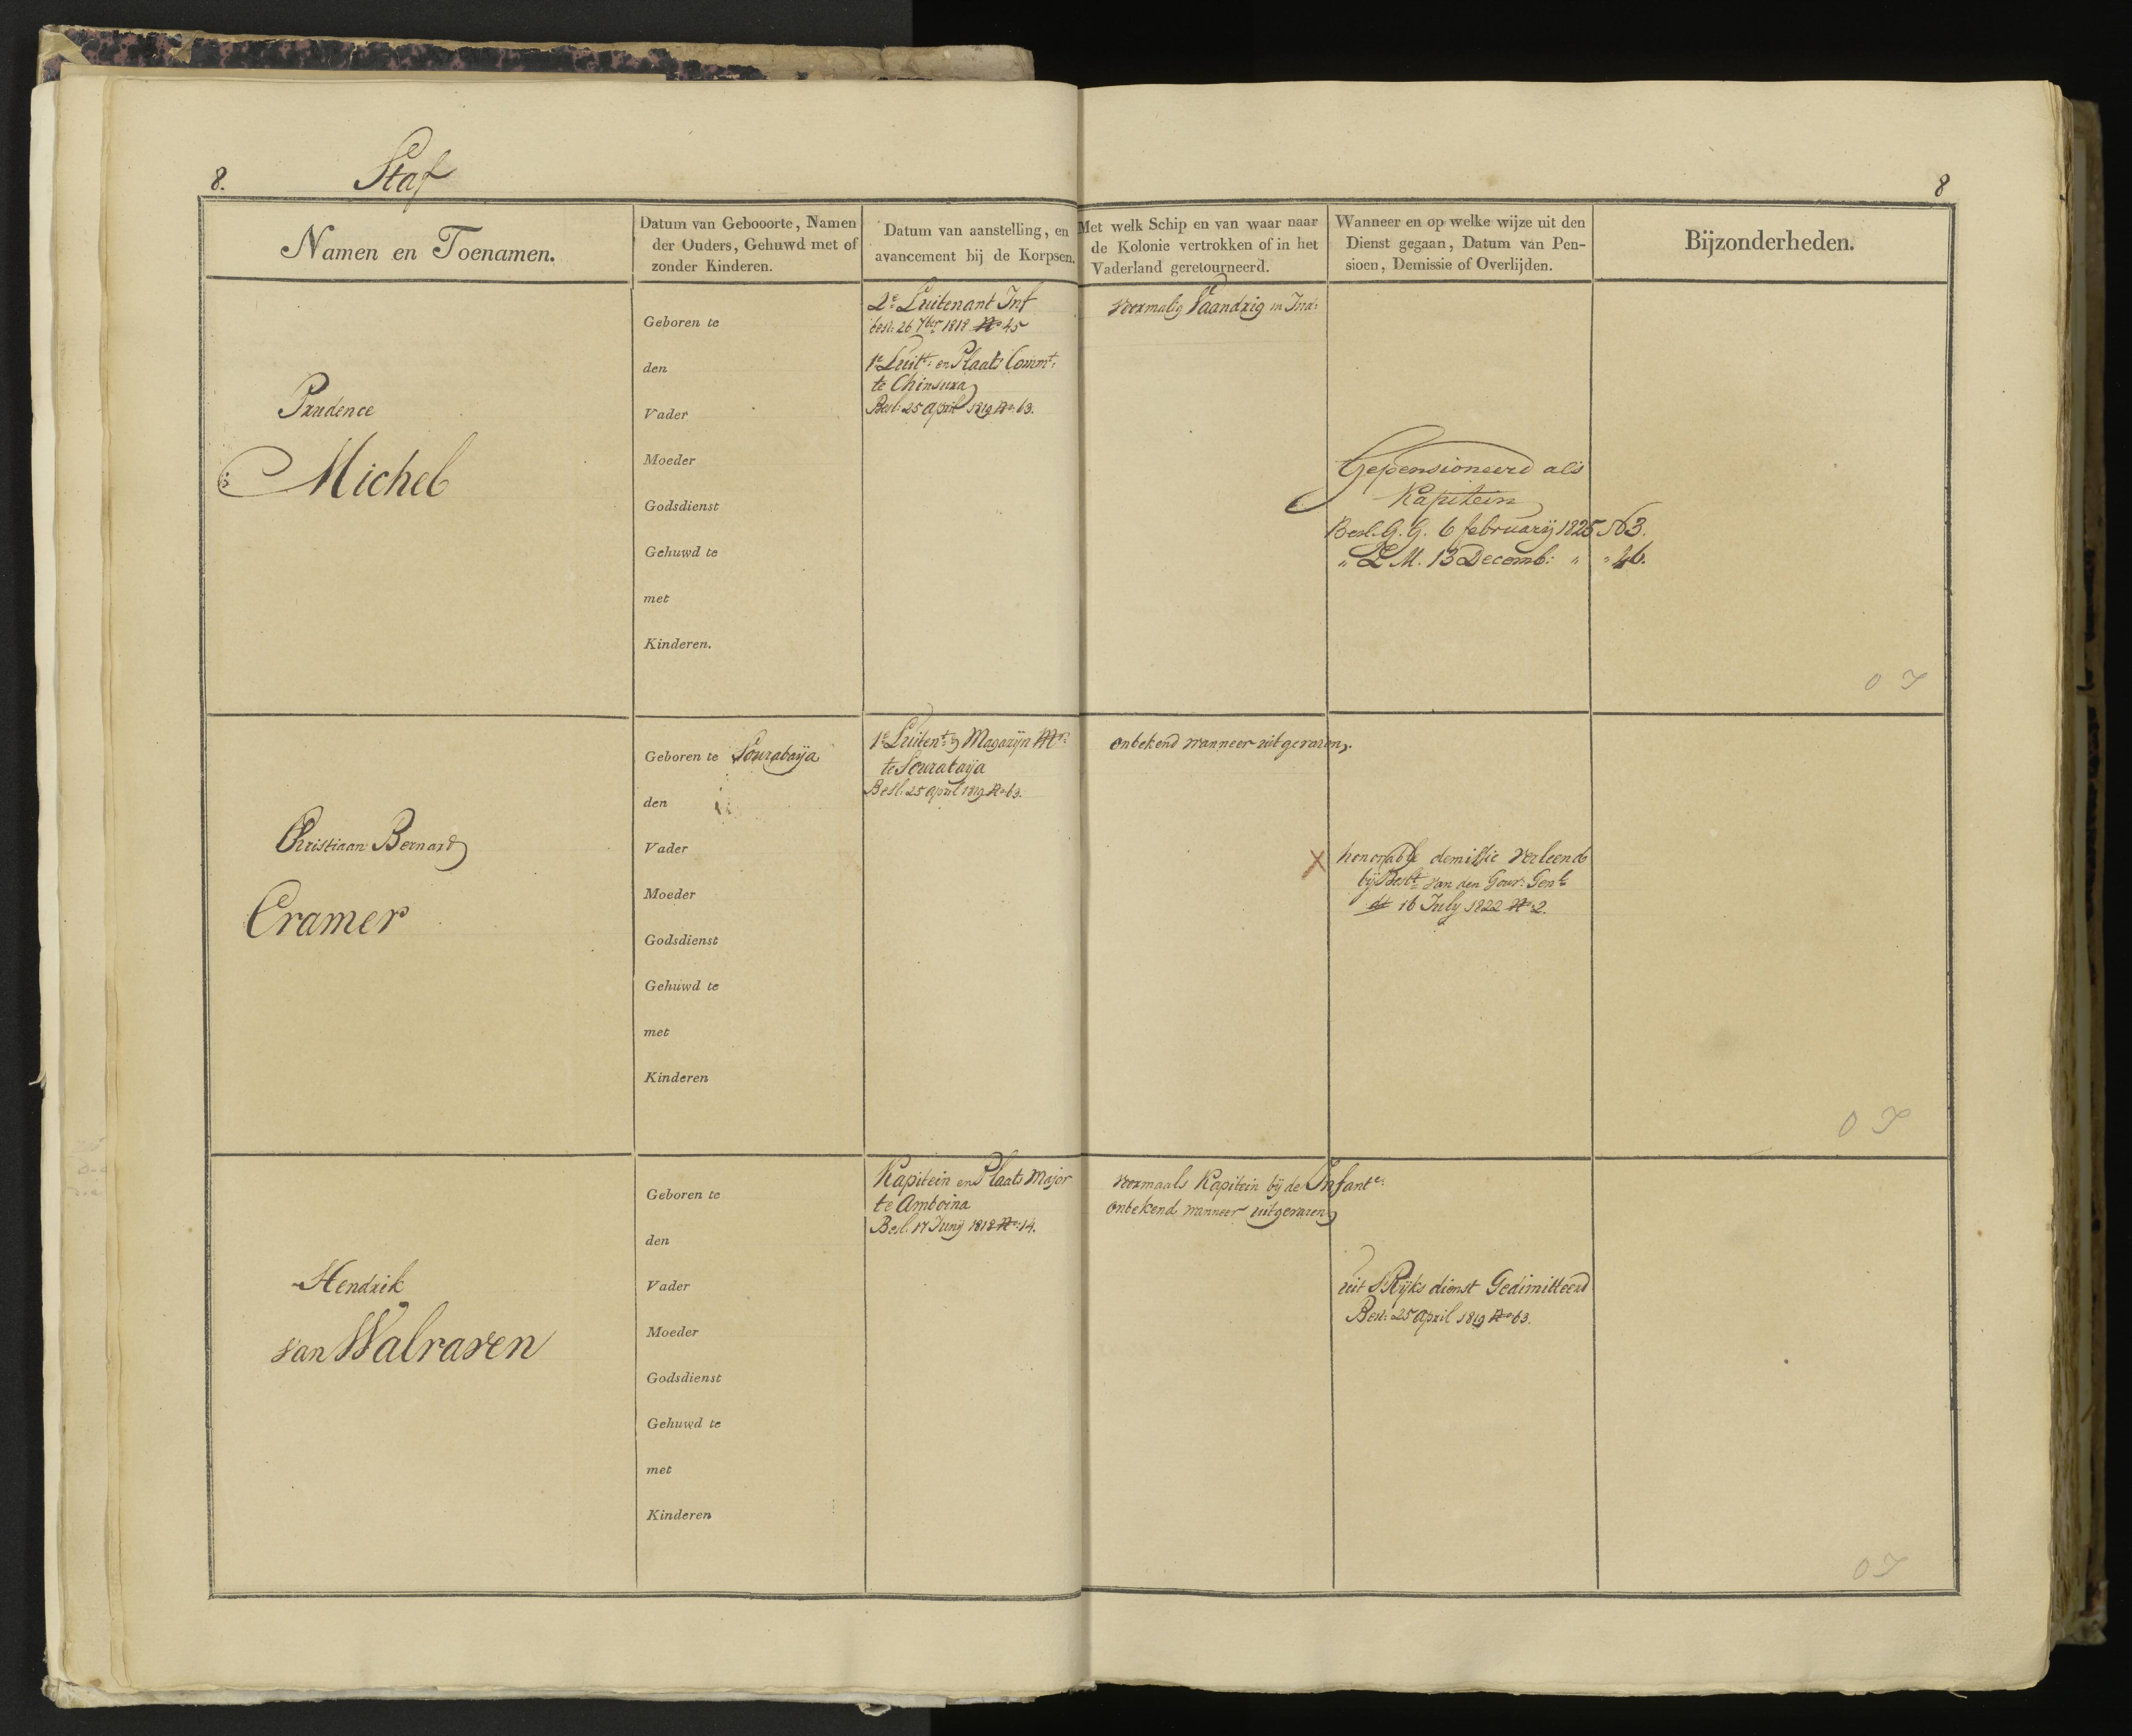 8.
Staf
8
Namen en Toenamen.
Datum van Gebooorte, Namen
der Ouders, Gehuwd met of
zonder Kinderen.
Datum van aanstelling, en
avancement bij de Korpsen.
Met welk Schip en van waar naar
de Kolonie vertrokken of in het
Vaderland geretourneerd.
Wanneer en op welke wijze uit den
Dienst gegaan, Datum van Pen-
sioen, Demissie of Overlijden.
Bijzonderheden.
Prudence
Michel
Geboren te
den
Vader
Moeder
Godsdienst
Gehuwd te
met
Kinderen.
2e Luitenant Inf
besl: 26 7ber 1818 No 45
1e Luitt: en Plaats Commt:
te Chinsura
Besl: 25 april 1819 No 63.
voormalig Vaandrig in Ind:
Gepensioneerd als
Kapitein
Besl. G. G. 6 february 1825 No 3.
" L M. 13 Decemb: " " 46.
Christiaan Bernard
Cramer
Geboren te Sourabaija
den
Vader
Moeder
Godsdienst
Gehuwd te
met
Kinderen
1e Luitent: Magazijn Mr:
te Sourabaija
Besl: 25 april 1819 No 63.
onbekend wanneer uitgevaren.
X
honorable demissie verleend
bij Beslt van den Gouvr: Genl
dd 16 July 1822 No 2.
Hendrik
van Walraven
Geboren te
den
Vader
Moeder
Godsdienst
Gehuwd te
met
Kinderen
Kapitein en Plaats Major
te Amboina
Besl. 17 Junij 1818 No 14.
voormaals Kapitein bij de Infante:
onbekend wanneer uitgevaren
uit 's Rijks dienst Gedimitteerd
Besl: 25 april 1819 No 63.